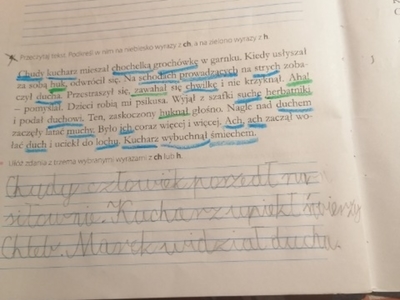 Przeczytaj tekst. Podkreśl w nim na niebiesko wyrazy z ch, a na zielono wyrazy z h.
Chudy kucharz mieszał chochelką grochówkę w garnku. Kiedy usłyszał
za sobą huk, odwrócił się. Na schodach prowadzących na strych zoba-
czył ducha. Przestraszył się, zawahał się chwilkę i nie krzyknął. Aha!
– pomyślał. Dzieci robią mi psikusa. Wyjął z szafki suche herbatniki
i podał duchowi. Ten, zaskoczony huknął głośno. Nagle nad duchem
zaczęły latać muchy. Było ich coraz więcej i więcej. Ach, ach zaczął wo-
łać duch i uciekł do lochu. Kucharz wybuchnął śmiechem.
Ułóż zdania z trzema wybranymi wyrazami z ch lub h.
Chudy człowiek poszedł na
siłownie. Kucharz upiekł świeży
Chleb. Marek widział ducha.